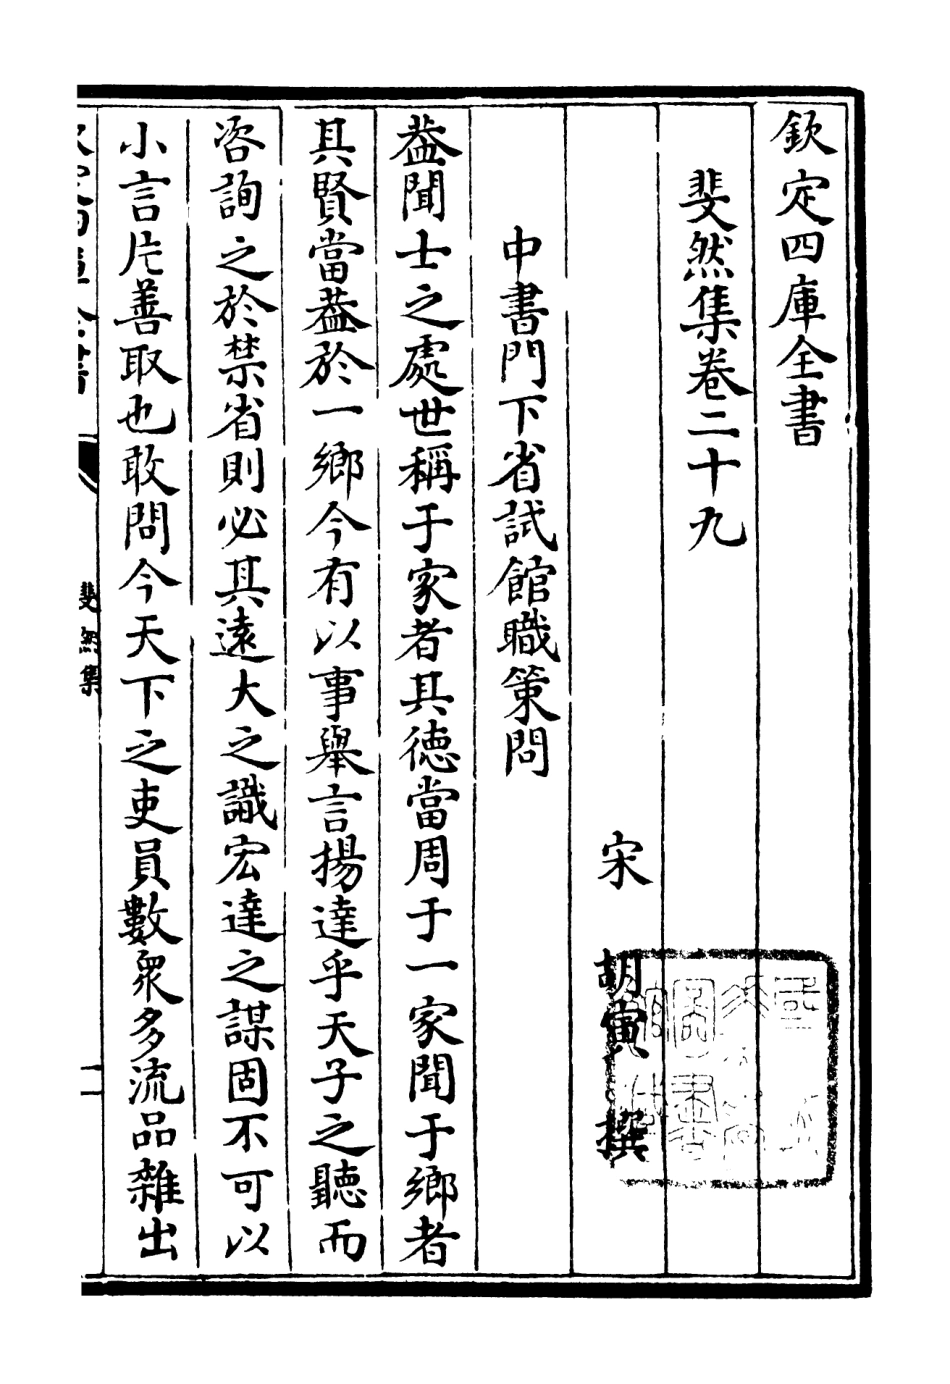 欽定四庫全書
斐然集卷二十九
宋 胡寅 撰
中書門下省試館職策問
葢聞士之處世稱于家者其德當周于一家聞于鄉者
其賢當葢於一鄉今有以事舉言揚達乎天子之聽而
咨詢之於禁省則必其遠大之識宏達之謀固不可以
小言片善取也敢問今天下之吏員數衆多流品雜出
斐然集